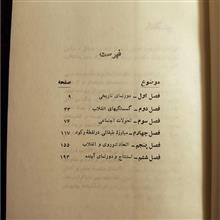 فهرست
موضوع صفحه
فصل اول ــ دورنمای تاریخی ۹
فصل دوم ــ گسستگیهای انقلاب ۴۳
فصل سوم ــ تحولات اجتماعی ۷۶
فصل چهارم ــ مبارزهٔ طبقاتی در نقطهٔ رکود ۱۱۷
فصل پنجم ــ اتحاد شوروی و انقلاب ۱۵۵
فصل ششم ــ استنتاج و دورنمای آینده ۱۹۳